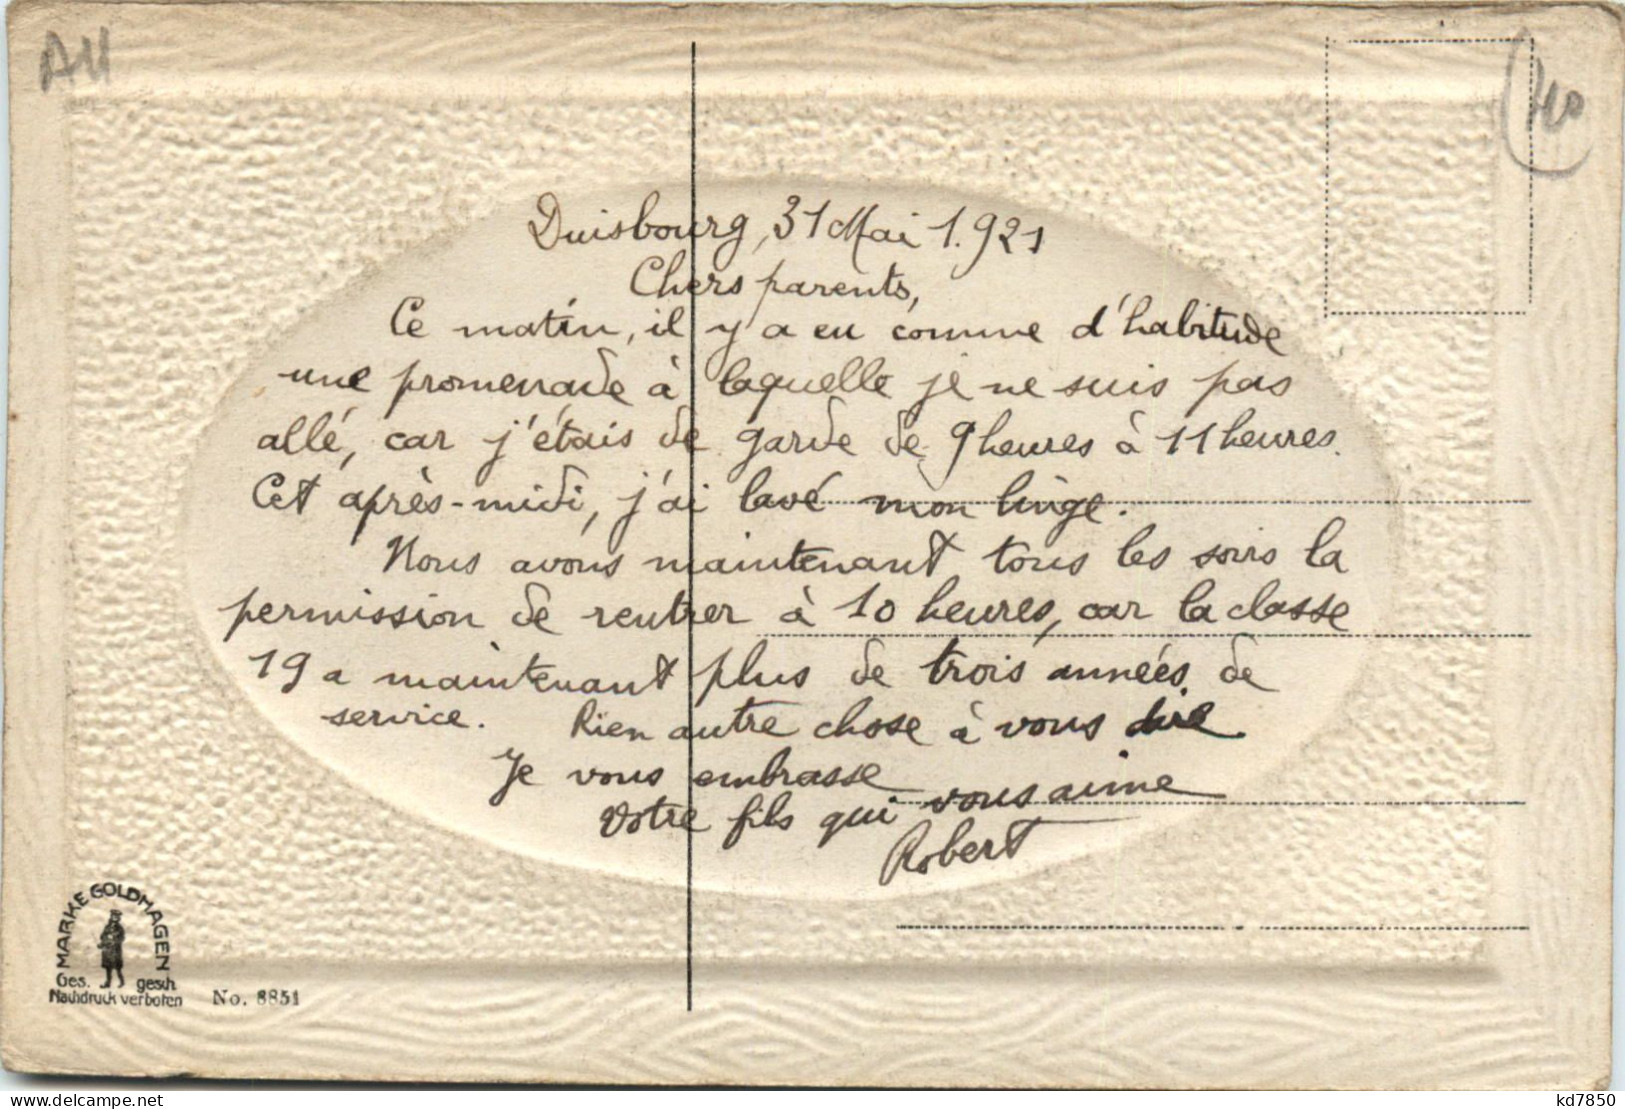 AH
40
Duisbourg, 31 Mai 1.921
Chers parents,
Ce matin, il y a eu comme d'habitude
une promenade à laquelle je ne suis pas
allé, car j'étais de garde de 9 heures à 11 heures.
Cet après-midi, j'ai lavé mon linge.
Nous avons maintenant tous les soirs la
permission de rentrer à 10 heures, car la classe
19 a maintenant plus de trois années de
service. Rien autre chose à vous dire.
Je vous embrasse
Votre fils qui vous aime
Robert
MARKE GOLDHAGEN
Ges. gesch.
Nachdruck verboten No. 8851
kd7850